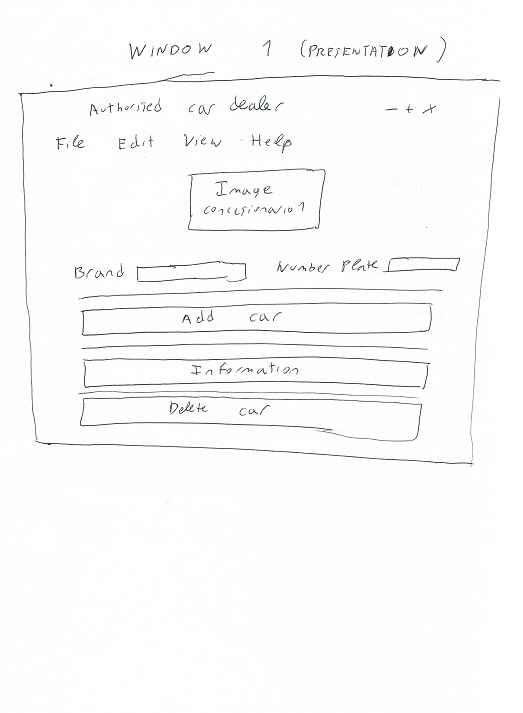 WINDOW 1 (PRESENTATION)
Authorised car dealer - + x
File Edit View Help
Image
concesionario 1
Brand Number Plate
Add car
Information
Delete car